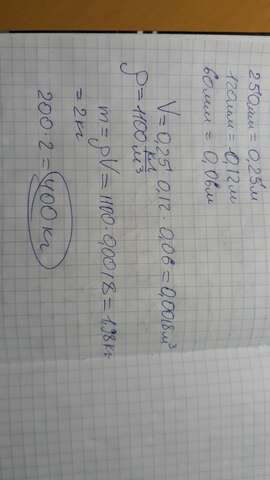 250мм = 0,25м
120мм = 0,12м
60мм = 0,06м
V = 0,25 · 0,12 · 0,06 = 0,0018м³
ρ = 1100 кг/м³
m = ρV = 1100 · 0,0018 = 1,98кг
= 2кг
200 · 2 = 400 кг